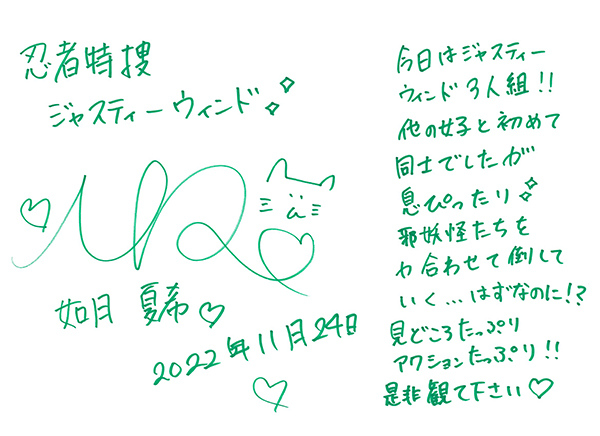 忍者特捜
ジャスティーウィンド
如月 夏希♡
2022年11月24日
今日はジャスティー
ウィンド3人組!!
他の女子と初めて
同士でしたが
息ぴったり
邪妖怪たちを
力合わせて倒して
いく...はずなのに!?
見どころたっぷり
アクションたっぷり!!
是非観て下さい♡